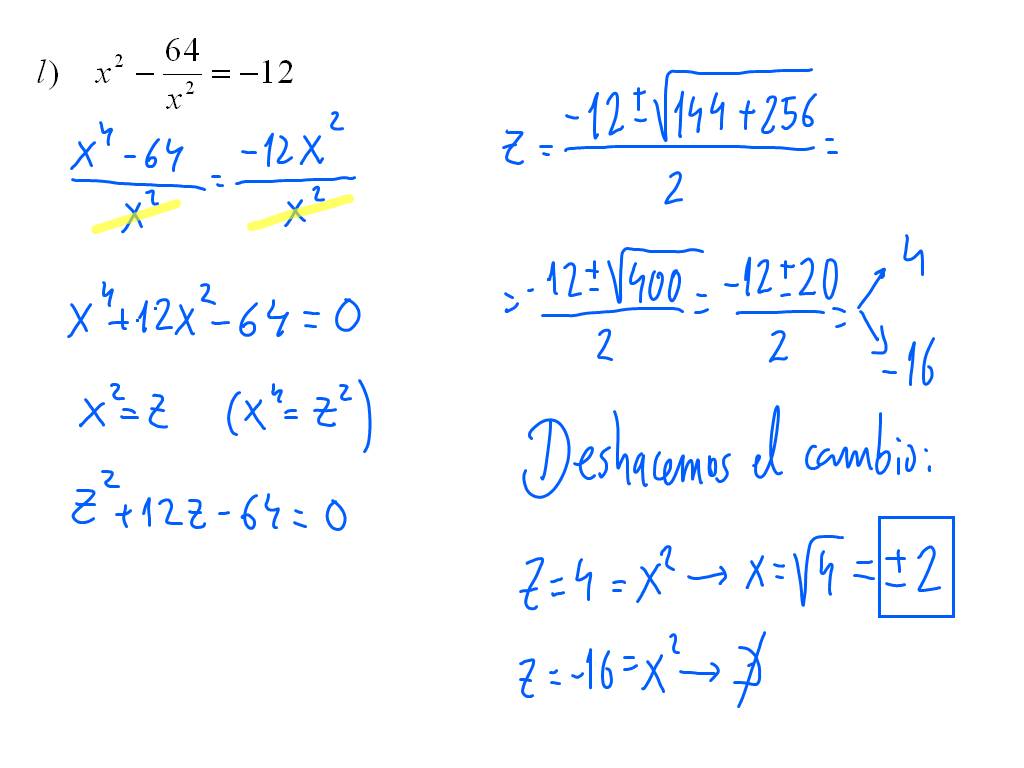 l) x² − 64/x² = −12
(x⁴ − 64)/x² = −12x²/x²
x⁴ + 12x² − 64 = 0
x² = z (x⁴ = z²)
z² + 12z − 64 = 0
z = (−12 ± √(144 + 256))/2 =
= (−12 ± √400)/2 = (−12 ± 20)/2 = ↗ 4 ↘ −16
Deshacemos el cambio:
z = 4 = x² → x = √4 = ± 2
z = −16 = x² → ∄